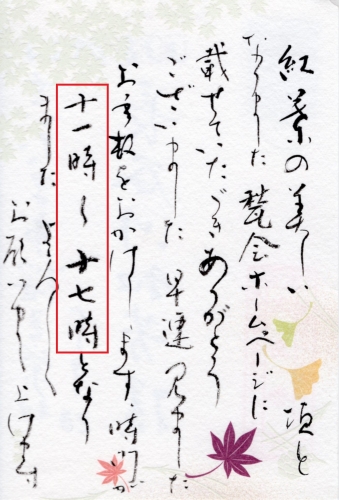 紅葉の美しい頃と
なりました 甍会ホームページに
載せていただきありがとう
ございました 早速見ました
お手数をおかけします 時間が
十一時〜十七時となり
ました よろしく
お願い申し上げます